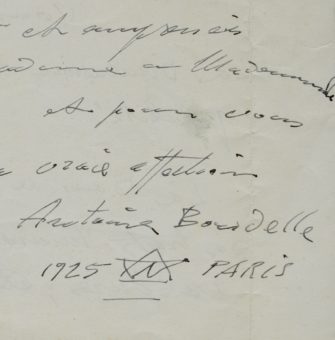 et auprès de
madame et Mademoiselle
et pour vous
vraie affection
Antoine Bourdelle
1925 PARIS